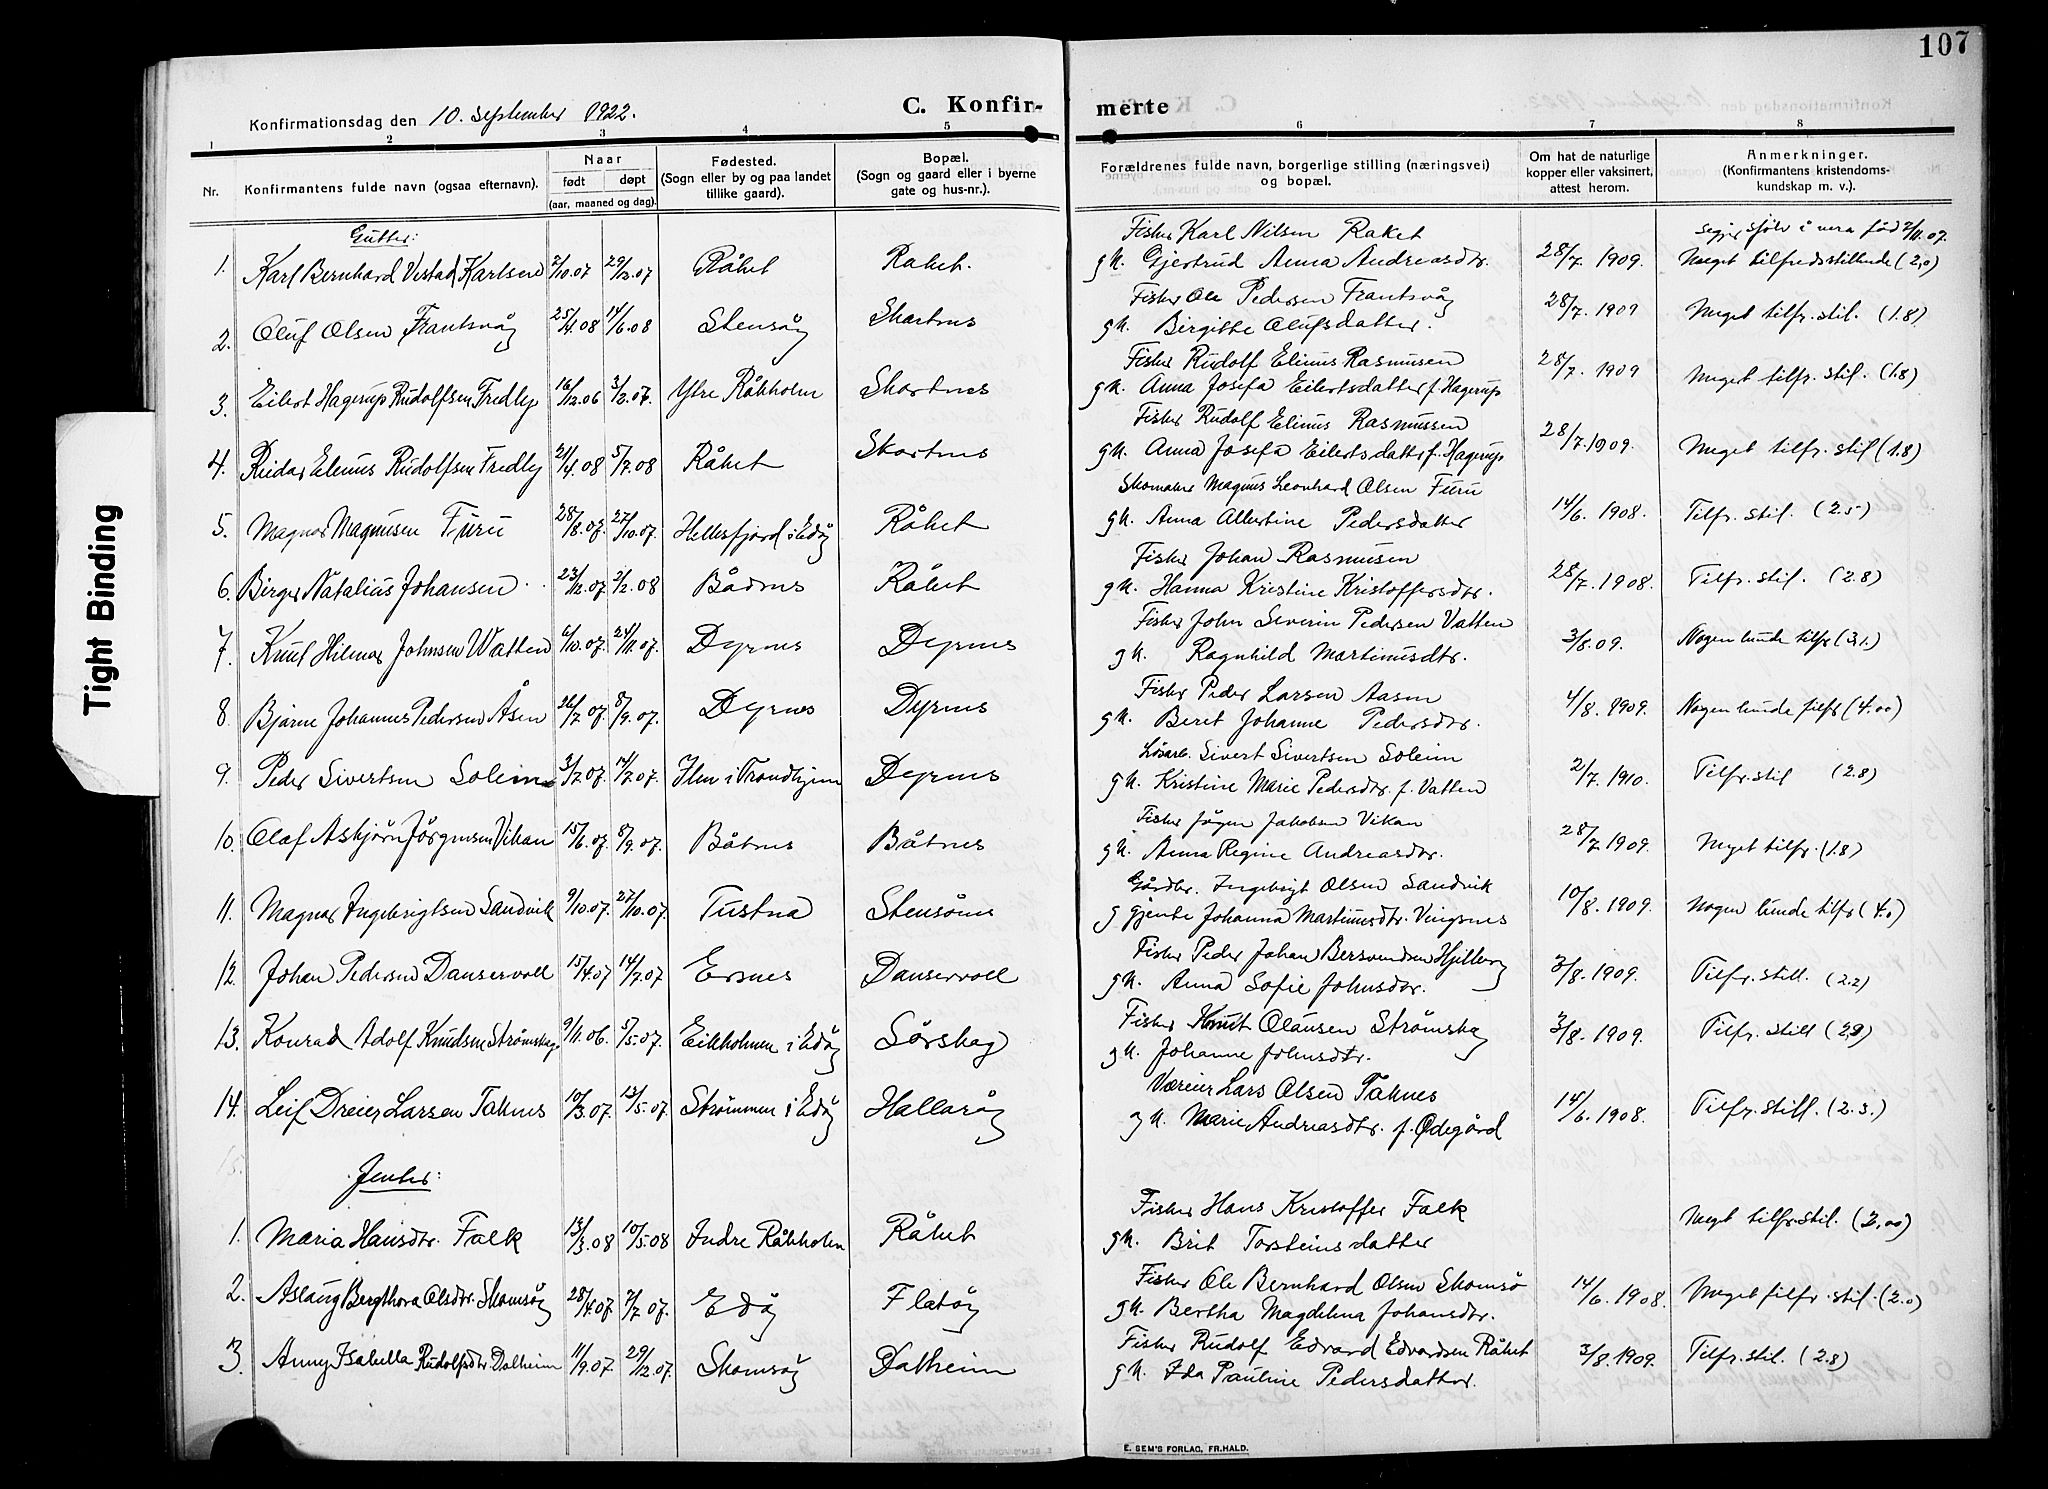 107
Konfirmationsdag den 10. September 1922.
C. Konfir-
merte
1 2 3 4 5 6 7 8
Nr.
Konfirmantens fulde navn (ogsaa efternavn).
Naar
født døpt
(aar, maaned og dag).
Fødested.
(Sogn eller by og paa landet
tillike gaard).
Bopæl.
(Sogn og gaard eller i byerne
gate og hus-nr.).
Forældrenes fulde navn, borgerlige stilling (næringsvei)
og bopæl.
Om hat de naturlige
kopper eller vaksinert,
attest herom.
Anmerkninger.
(Konfirmantens kristendoms-
kundskap m. v.).
Tight Binding
Gutter:
Fisker Karl Nilsen Raket
sjølv å vera fød 2/11.07.
1. Karl Bernhard Vestad Karlsen 2/10.07 29/12.07 Råket Raket. g.m. Gjertrud Anna Andreasdtr. 28/7. 1909. Meget tilfredsstillende (2,0)
Fisker Ole Pedersen Frantsvåg
2. Oluf Olsen Frantsvåg 25/4.08 14/6.08 Stensøy Skarnes g.m. Birgitte Olufsdatter. 28/7. 1909 Meget tilfr. stil. (1.8)
Fisker Rudolf Elinus Rasmusen
3. Eilert Hagerup Rudolfsen Fredly 16/12.06 3/2.07. Ytre Råkholm Skortnes g.m. Anna Josefa Eilertsdatter f. Hagerup 28/7. 1909 Meget tilfr. stil. (1.8)
Fisker Rudolf Elinus Rasmussen
4. Reidar Elinus Rudolfsen Fredly 21/4.08 5/7.08 Råket Skortnes g.m. Anna Josefa Eilertsdatter f. Hagerup 28/7.1909. Meget tilfr. stil (1.8)
Skomaker Magnus Leonhard Olsen Furu
5. Magnar Magnusen Furu 28/8.07. 27/10.07. Hellesfjord i Edøy Råket g.m. Anna Albertine Pedersdatter 14/6. 1908. Tilfr. stil. (2.5)
Fisker Johan Rasmusen
6. Birger Natalius Johansen 23/12.07 2/2.08 Bådnes Råket g.m. Hanna Kristine Kristoffersdtr. 28/7. 1908. Tilfr. stil. (2.8)
Fisker John Severin Pedersen Vatten
7. Knut Hilmar Johnsen Watten 6/10.07. 24/11.07. Dyrnes Dyrnes g.m. Ragnhild Martinusdtr. 3/8.09. Nogen lunde tilfr (3.1.)
Fisker Peder Larsen Aasen
8. Bjarne Johannes Pedersen Åsen 26/7 07. 8/9.07. Dyrnes Dyrnes g.m. Beret Johanne Pedersdtr. 4/8. 1909. Nogen lunde tilfr (4.00)
Løsarb. Sivert Sivertsen Soleim
9. Peder Sivertsen Soleim 3/7.07. 14/7.07. Ilen i Trondhjem Dyrnes g.m. Kristine Marie Pedersdtr. f. Vatten 2/7. 1910. Tilfr. stil (2.8)
Fisker Jøgen Jakobsen Vikan
10. Olaf Asbjørn Jørgensen Vikan 15/6.07 8/9.07. Båtnes Båtnes g.m. Anna Regine Andreasdtr. 28/7 1909. Meget tilfr. (1.8)
Gårdbr. Ingebrigt Olsen Sandvik
11. Magnar Ingebrigtsen Sandvik 9/10.07. 27/10.07. Tustna Stensønes g gjente Johanna Martinusdtr. Vingsnes 10/8. 1909. Nogen lunde tilfr (4.0)
Fisker Peder Johan Bersvendsen Hjelberg
12. Johan Pedersen Danservoll 15/4.07 14/7.07 Ersnes Danservoll g.m. Anna Sofie Johnsdtr. 3/8. 1909. Tilfr. still. (2.2)
Fisker Knut Olausen Strømskag
13. Konrad Adolf Knudsen Strømskag 9/11.06. 5/5.07. Eikholmen i Edøy Sørskag g.m. Johanne Johnsdtr. 3/8. 1909. Tilfr. still (2,8)
Væreier Lars Olsen Taknes
14. Leif Dreier Larsen Taknes 10/3.07. 12/5.07 Strømmen i Edøy Hallarøy g.m. Marie Andreasdtr. f. Ødegård 14/6. 1908. Tilfr. still. (2.3.)
15.
Jenter:
Fisker Hans Kristoffer Falk
1. Maria Hansdtr. Falk 13/3.08 10/5.08 Indre Råkholm Råket g.m. Brit Torsteinsdatter Meget tilfr. stil. (2,00)
Fisker Ole Bernhard Olsen Skomsø
2. Aslaug Bergthora Olsdtr. Skomsøy 28/4.07. 7/7 07. Edøy Flatøy g.m. Bertha Magdelena Johansdtr. 14/6. 1908. Meget tilfr. stil. (2.0)
Fisker Rudolf Edvard Edvardsen Råket
3. Anny Isabella Rudolfsdtr. Dalheim 11/9.07. 29/12.07. Skomsøy Dalheim g.m. Ida Pauline Pedersdatter. 3/8.1909. Tilfr. stil. (2.8)
E. SEM'S FORLAG, FR.HALD.